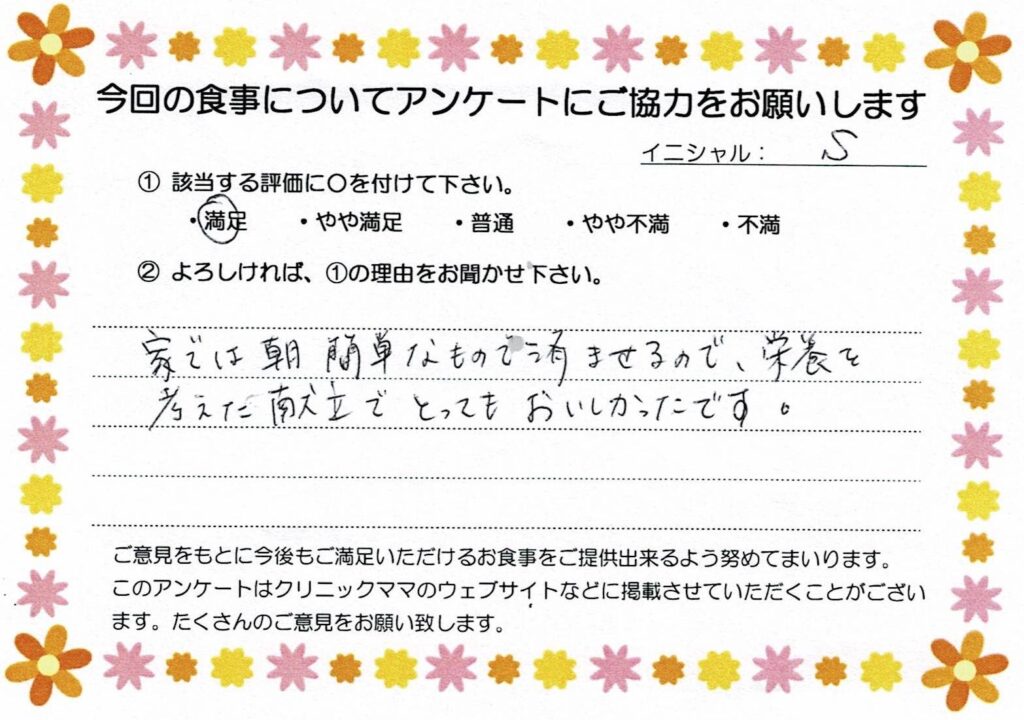 今回の食事についてアンケートにご協力をお願いします
イニシャル： S
① 該当する評価に〇を付けて下さい。
・満足 ・やや満足 ・普通 ・やや不満 ・不満
② よろしければ、①の理由をお聞かせ下さい。
家では朝簡単なもので済ませるので、栄養を
考えた献立でとってもおいしかったです。
ご意見をもとに今後もご満足いただけるお食事をご提供出来るよう努めてまいります。
このアンケートはクリニックママのウェブサイトなどに掲載させていただくことがござい
ます。たくさんのご意見をお願い致します。